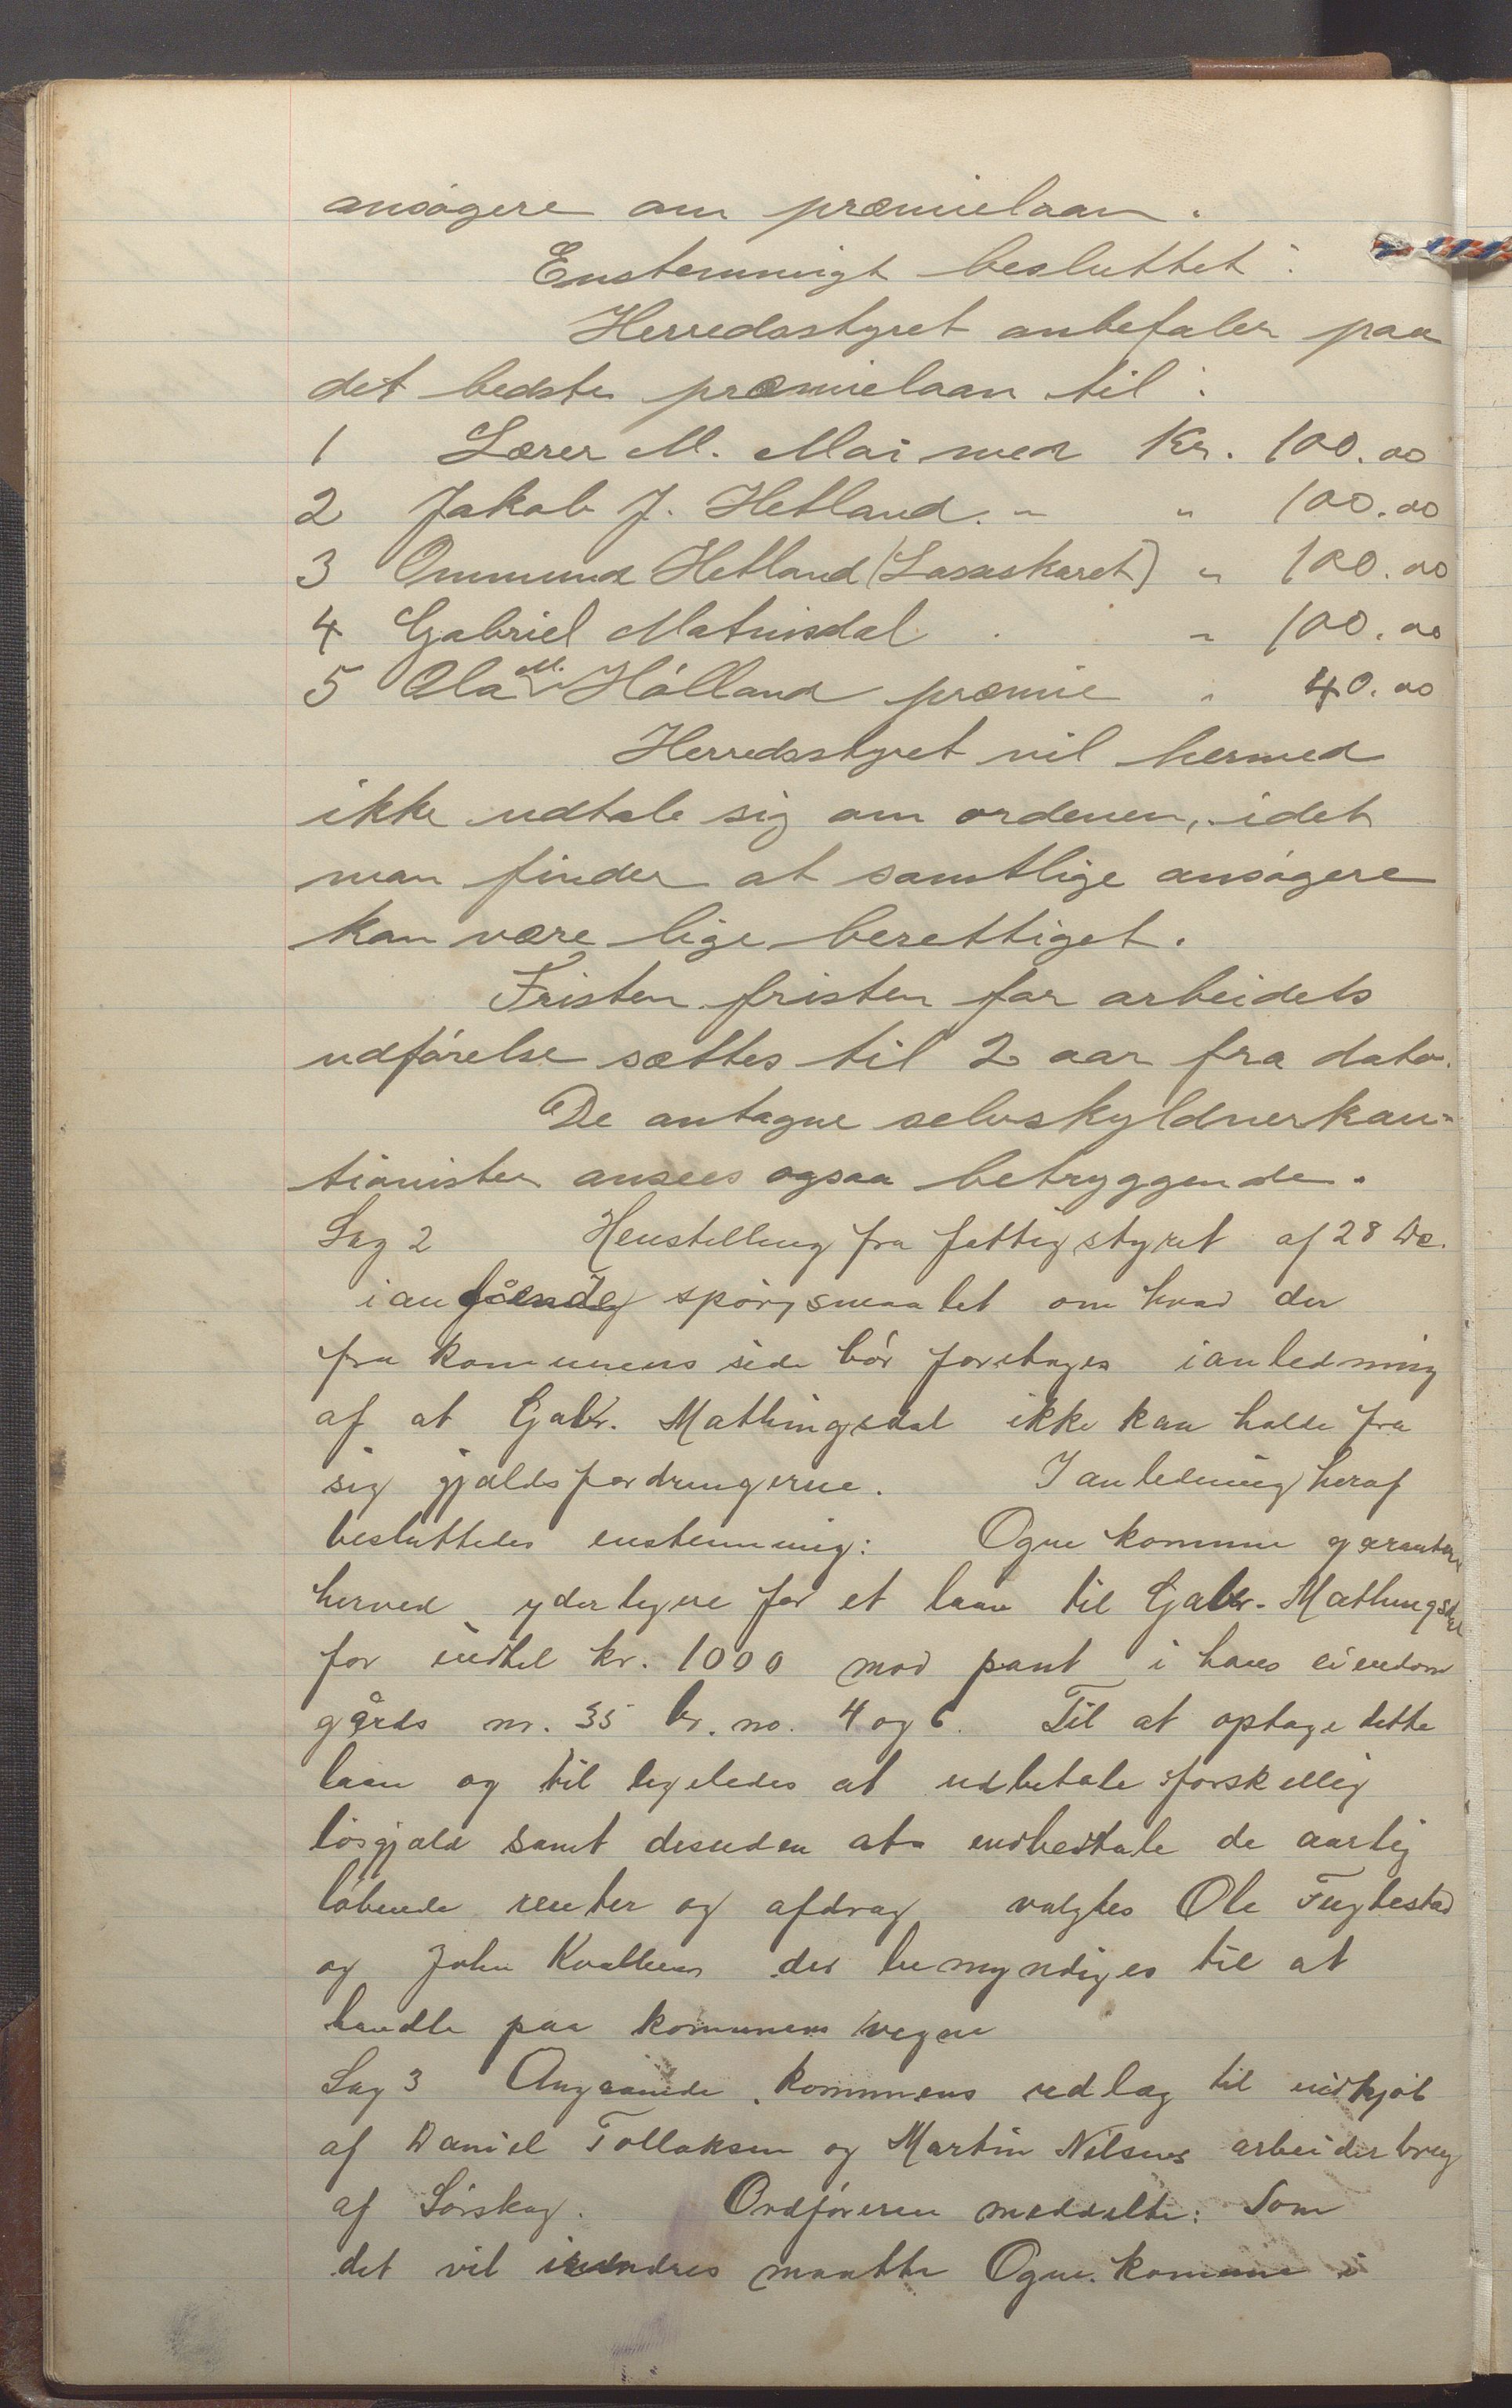 ansøgere om præmielaan.
Enstemmigt besluttet:
Herredsstyret anbefaler paa
det bedste præmielaan til:
1 Lærer M. Moi med Kr. 100.00
2 Jakob J. Hetland. " " 100.00
3 Ommund Hetland (Lasaskaret) " 100.00
4 Gabriel Matnisdal " 100.00
5 Ola M. Hólland præmie " 40.00
Herredsstyret vil hermed
ikke udtale sig om ordenen, idet
man finder at samtlige ansøgere
kan være lige berettiget.
Fristen fristen for arbeidets
udførelse sættes til 2 aar fra dato.
De antagne selvskyldnerkau-
tionister ansees ogsaa betryggende.
Sag 2 Henstilling fra fattigstyret af 28 De.
i an spørgsmaalet om hvad der
fra kommunens side bør foretages i anledning
af at Gabr. Mathingsdal ikke kan holde fra
sig gjældsfordringerne. I anledning heraf
besluttedes enstemmig: Ogne kommune garanterer
herved yderligere for et laan til Gabr. Mathingsdal
for indtil kr. 1000 mod pant i hans eiendom
gårds nr. 35 br. no. 4 og 6. Til at optage dette
laan og til ligeledes at udbetale forskellig
løsgjæld samt desuden at indbetale de aarlig
løbende renter og afdrag valgtes Ole Fuglestad
og John Kvalbein der bemyndiges til at
handle paa kommunens vegne
Sag 3 Angaaende kommunens udlæg til indkjøb
af Daniel Tollaksen og Martin Nilsens arbeiderbrug
af Sirskog. Ordføreren meddelte: Som
det vil erindres maatte Ogne kommune i